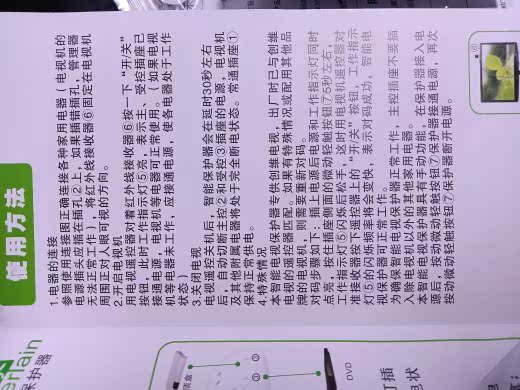 使用方法
1.电器的连接
参照使用连接图正确连接各种家用电器（电视机的
电源插头应插在插孔②上，如果插错插孔，管理器
无法正常工作），将红外线接收器⑥固定在电视机
周围正对人眼可视的方向。
2.开启电视机
用电视遥控器对着红外线接收器⑥按一下“开/关”
按钮，此时工作指示灯⑤亮，表示主、受控插座已
接通电源，电视机等电器可正常使用。（如果电视
机等电器未工作，应接通电源，使各电器处于工作
状态）
3.关闭电视
电视遥控关机后，智能保护器会在延时30秒左右
后，自动切断主控②和受控③插座的电源，电视机
及其他附属电器将处于完全断电状态。常通插座①
保持正常供电。
4.特殊情况
本智能电视保护器专供创维电视，出厂时已与创维
电视的遥控器匹配。如果有特殊情况或配用其他品
牌的电视机，则需要重新对码。
对码步骤如下：插上电源后电源和工作指示灯同时
点亮，按住插座侧面的微动轻触按钮⑦5秒左右，
工作指示灯⑤闪烁后松手，这时用电视机遥控器对
准接收器按下遥控器上的“开关”按钮，工作指示
灯⑤的闪烁频率将会变快，表示对码成功，智能电
视保护器可正常工作。
为确保智能电视保护器正常工作，主控插座不要插
入除电视机以外的其他家用电器。
本智能电视保护器具有手动功能，在保护器接入电
源后，按动微动轻触按钮⑦保护器接通电源，再次
按动微动轻触按钮⑦保护器断开电源。
保护器
顶盒
DVD
灯插
电状